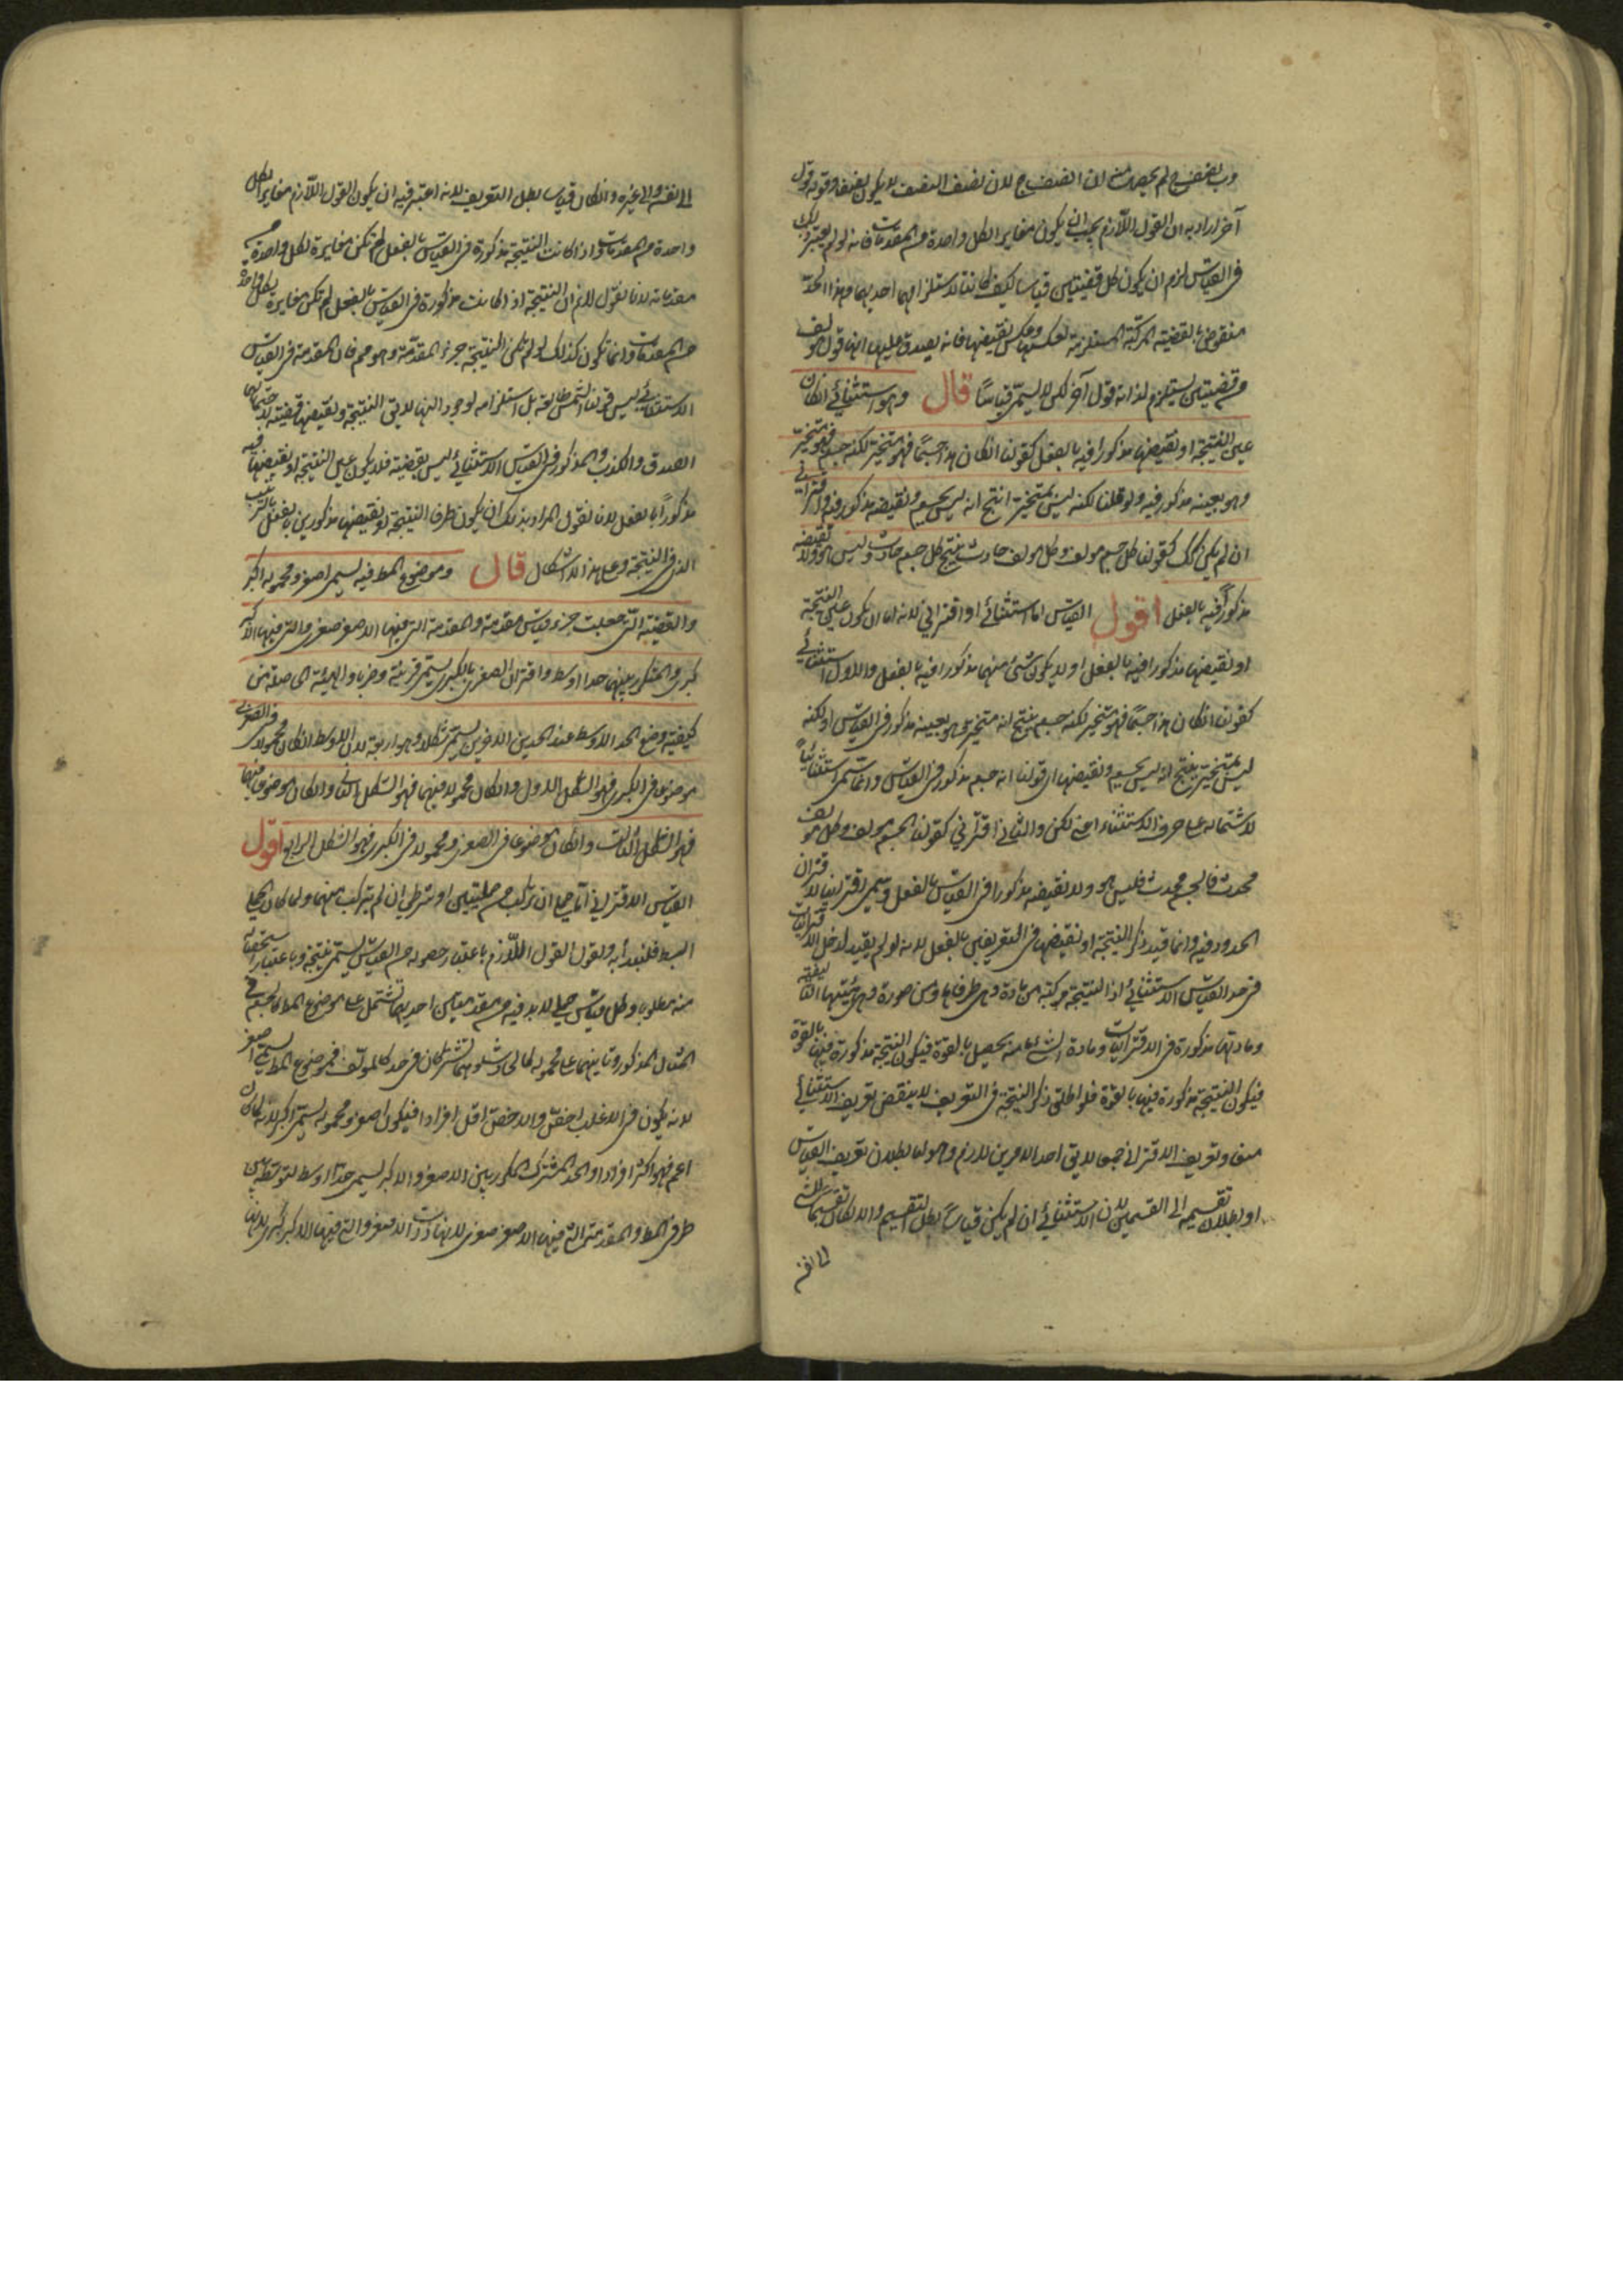 وب لنصف ج لم يحصل منه ان ا نصف ج لان نصف النصف لا يكون نصفا وقوله قول
آخر اراد به ان القول اللازم يجب ان يكون مغايرا لكل واحدة من المقدمات فانه لو لم يعتبر ذلك
فى القياس لزم ان يكون كل قضيتين قياسا كيف كانتا لاستلزامهما احديهما وهذا الحد
منقوض بالقضية المركبة المستلزمة لعكسها وعكس نقيضها فانه يصدق عليها انها قول مؤلف
من قضيتين يستلزم لذاته قول آخر لكن لا يسمى قياسا قال وهو استثنائى ان كان
عين النتيجة او نقيضها مذكورا فيه بالفعل كقولنا ان كان هذا جسما فهو متحيز لكنه جسم فهو متحيز
وهو بعينه مذكور فيه ولو قلنا لكنه ليس بمتحيز انتج انه ليس بجسم ونقيضه مذكور فيه واقترانى
ان لم يكن كذلك كقولنا كل جسم مولف وكل مولف حادث ينتج كل جسم حادث وليس هو ولا نقيضه
مذكورا فيه بالفعل اقول القياس اما استثنائى او اقترانى لانه اما ان يكون عين النتيجة
او نقيضها مذكورا فيه بالفعل او لا يكون شئ منهما مذكورا فيه بالفعل والاول استثنائى
كقولنا ان كان هذا جسما فهو متحيز لكنه جسم ينتج انه متحيز وهو بعينه مذكور فى القياس او لكنه
ليس بمتحيز ينتج انه ليس بجسم ونقيضها اى قولنا انه جسم مذكور فى القياس وانما سمى استثنائيا
لاشتماله على حرف الاستثناء اعنى لكن والثانى اقترانى كقولنا الجسم مولف وكل مولف
محدث فالجسم محدث فليس هو ولا نقيضه مذكورا فى القياس بالفعل وسمى اقترانيا لاقتران
الحدود فيه وانما قيد ذكر النتيجة او نقيضها فى التعريفين بالفعل لانه لو لم يقيد لدخل الاقترانيات
فى حد القياس الاستثنائى اذ النتيجة مركبة من مادة وهى طرفاها ومن صورة وهى هيئتها التاليفية
ومادتها مذكورة فى الاقترانيات ومادة الشئ ما منه يحصل بالقوة فيكون النتيجة مذكورة فيها بالقوة
فيكون النتيجة مذكورة فيها بالقوة فلو اطلق ذكر النتيجة فى التعريف لا ينتقض تعريف الاستثنائى
منعا وتعريف الاقترانى جمعا لا يق احد الامرين لازم وهو اما بطلان تعريف القياس
او بطلان تقسيمه الى القسمين لان الاستثنائى ان لم يكن قياسا بطل التقسيم والا لكان تقسيما للشئ
الى نفسه
الى نفسه والى غيره وان كان قياسا بطل التعريف لانه اعتبر فيه ان يكون القول اللازم مغايرا لكل
واحدة من المقدمات واذا كانت النتيجة مذكورة فى القياس بالفعل لم تكن مغايرة لكل واحدة من
مقدماته لانا نقول لانم ان النتيجة اذا كانت مذكورة فى القياس بالفعل لم تكن مغايرة لكل واحدة
من المقدمات وانما تكون كذلك لو لم تكن النتيجة جزء المقدمة وهو مم فان المقدمة فى القياس
الاستثنائى ليس قولنا الشمس طالعة بل استلزامه لوجود النهار لا يق النتيجة ونقيضها قضية لاحتمالها
الصدق والكذب والمذكور فى القياس الاستثنائى ليس بقضية فلا يكون عين النتيجة او نقيضها فيه
مذكورا بالفعل لانا نقول المراد بذلك ان يكون طرفا النتيجة او نقيضها مذكورين بالفعل بالترتيب
الذى فى النتيجة وعلى هذا لا اشكال قال وموضوع المط فيه يسمى اصغر ومحموله اكبر
والقضية التى جعلت جزء قياس مقدمة والمقدمة التى فيها الاصغر صغرى والتى فيها الاكبر
كبرى والمتكرر بينهما حدا اوسط واقتران الصغرى بالكبرى يسمى قرينة وضربا والهيئة الحاصلة من
كيفية وضع الحد الاوسط عند الحدين الاخرين يسمى شكلا وهو اربعة لان الاوسط ان كان محمولا فى الصغرى
موضوعا فى الكبرى فهو الشكل الاول وان كان محمولا فيهما فهو الشكل الثانى وان كان موضوعا فيهما
فهو الشكل الثالث وان كان موضوعا فى الصغرى ومحمولا فى الكبرى فهو الشكل الرابع اقول
القياس الاقترانى اما حملى ان تركب من حمليتين او شرطى ان لم يتركب منهما ولما كان الحملى
ابسط فلنبدأ به ولنقول القول اللازم باعتبار حصوله من القياس يسمى نتيجة وباعتبار استحصاله
منه مطلوبا وكل قياس حملى لا بد فيه من مقدمتين احديهما تشتمل على موضوع المط كالجسم فى
المثال المذكور وثانيهما على محموله كالحادث وهما تشتركان فى حد كالمولف فموضوع المط يسمى اصغر
لانه يكون فى الاغلب اخص والاخص اقل افرادا فيكون اصغر ومحموله يسمى اكبر لانه لما كان
اعم فهو اكثر افرادا والحد المشترك المكرر بين الاصغر والاكبر يسمى حدا اوسط لتوسطه بين
طرفى المط والمقدمة التى فيها الاصغر صغرى لانها ذات الاصغر والتى فيها الاكبر كبرى لانها